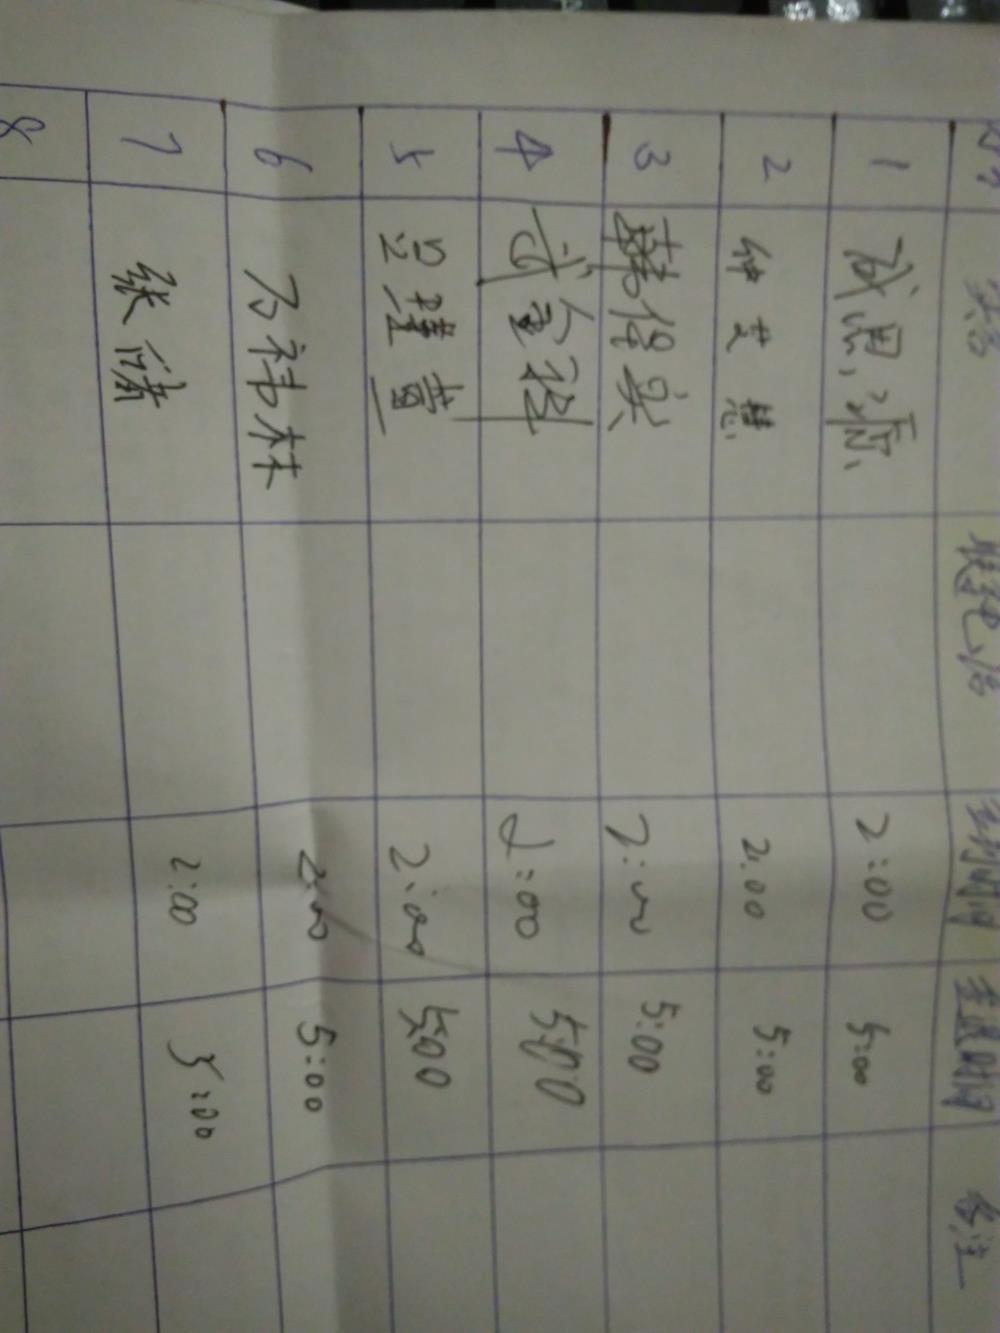 序号 姓名 联系电话 到时间 离开时间 备注
1 成思源 2:00 5:00
2 钟艾慧 2:00 5:00
3 韩佳奕 2:00 5:00
4 武金科 2:00 5:00
5 瑾萱 2:00 5:00
6 石祎林 2:00 5:00
7 张潇 2:00 5:00
8